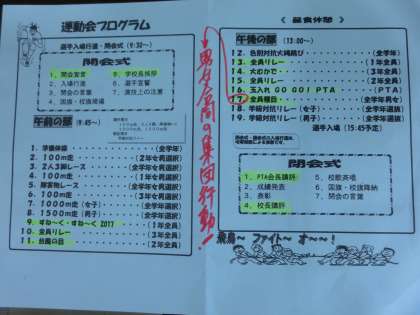 運動会プログラム
選手入場行進・開会式 (9:30~)
開会式
1. 開会宣言
2. 入場行進
3. 開会の言葉
4. 国旗・校旗掲揚
5. 学校長挨拶
6. 選手宣誓
7. 競技上の注意
午前の部 (9:45~)
1. 準備体操 (全学年)
2. 100m走 (2年女男選択)
3. 2人3脚レース (3年女男選択)
4. 100m走 (1年女男選択)
5. 障害物レース (2年女男選択)
6. 100m走 (3年女男選択)
7. 1000m走(女子) (全学年選択)
8. 1500m走(男子) (全学年選択)
9. すね~く・すね~く2017 (1年全員)
10. 全員リレー (3年全員)
11. 台風の目 (2年全員)
男女合同の集団行動!
昼食休憩
午後の部 (13:00~)
12. 色別対抗大縄跳び (全学年)
13. 全員リレー (1年全員)
14. 大むかで (3年全員)
15. 全員リレー (2年全員)
16. 玉入れ GO GO! PTA (PTA)
17. 全員種目 (全学年男女)
18. 学級対抗リレー(女子) (全学年選択)
19. 学級対抗リレー(男子) (全学年選択)
選手入場 (15:45予定)
閉会式
1. PTA会長講評
2. 成績発表
3. 表彰
4. 校長講評
5. 校歌斉唱
6. 国旗・校旗降納
7. 閉会の言葉
飛鳥~ ファイト オ~~!